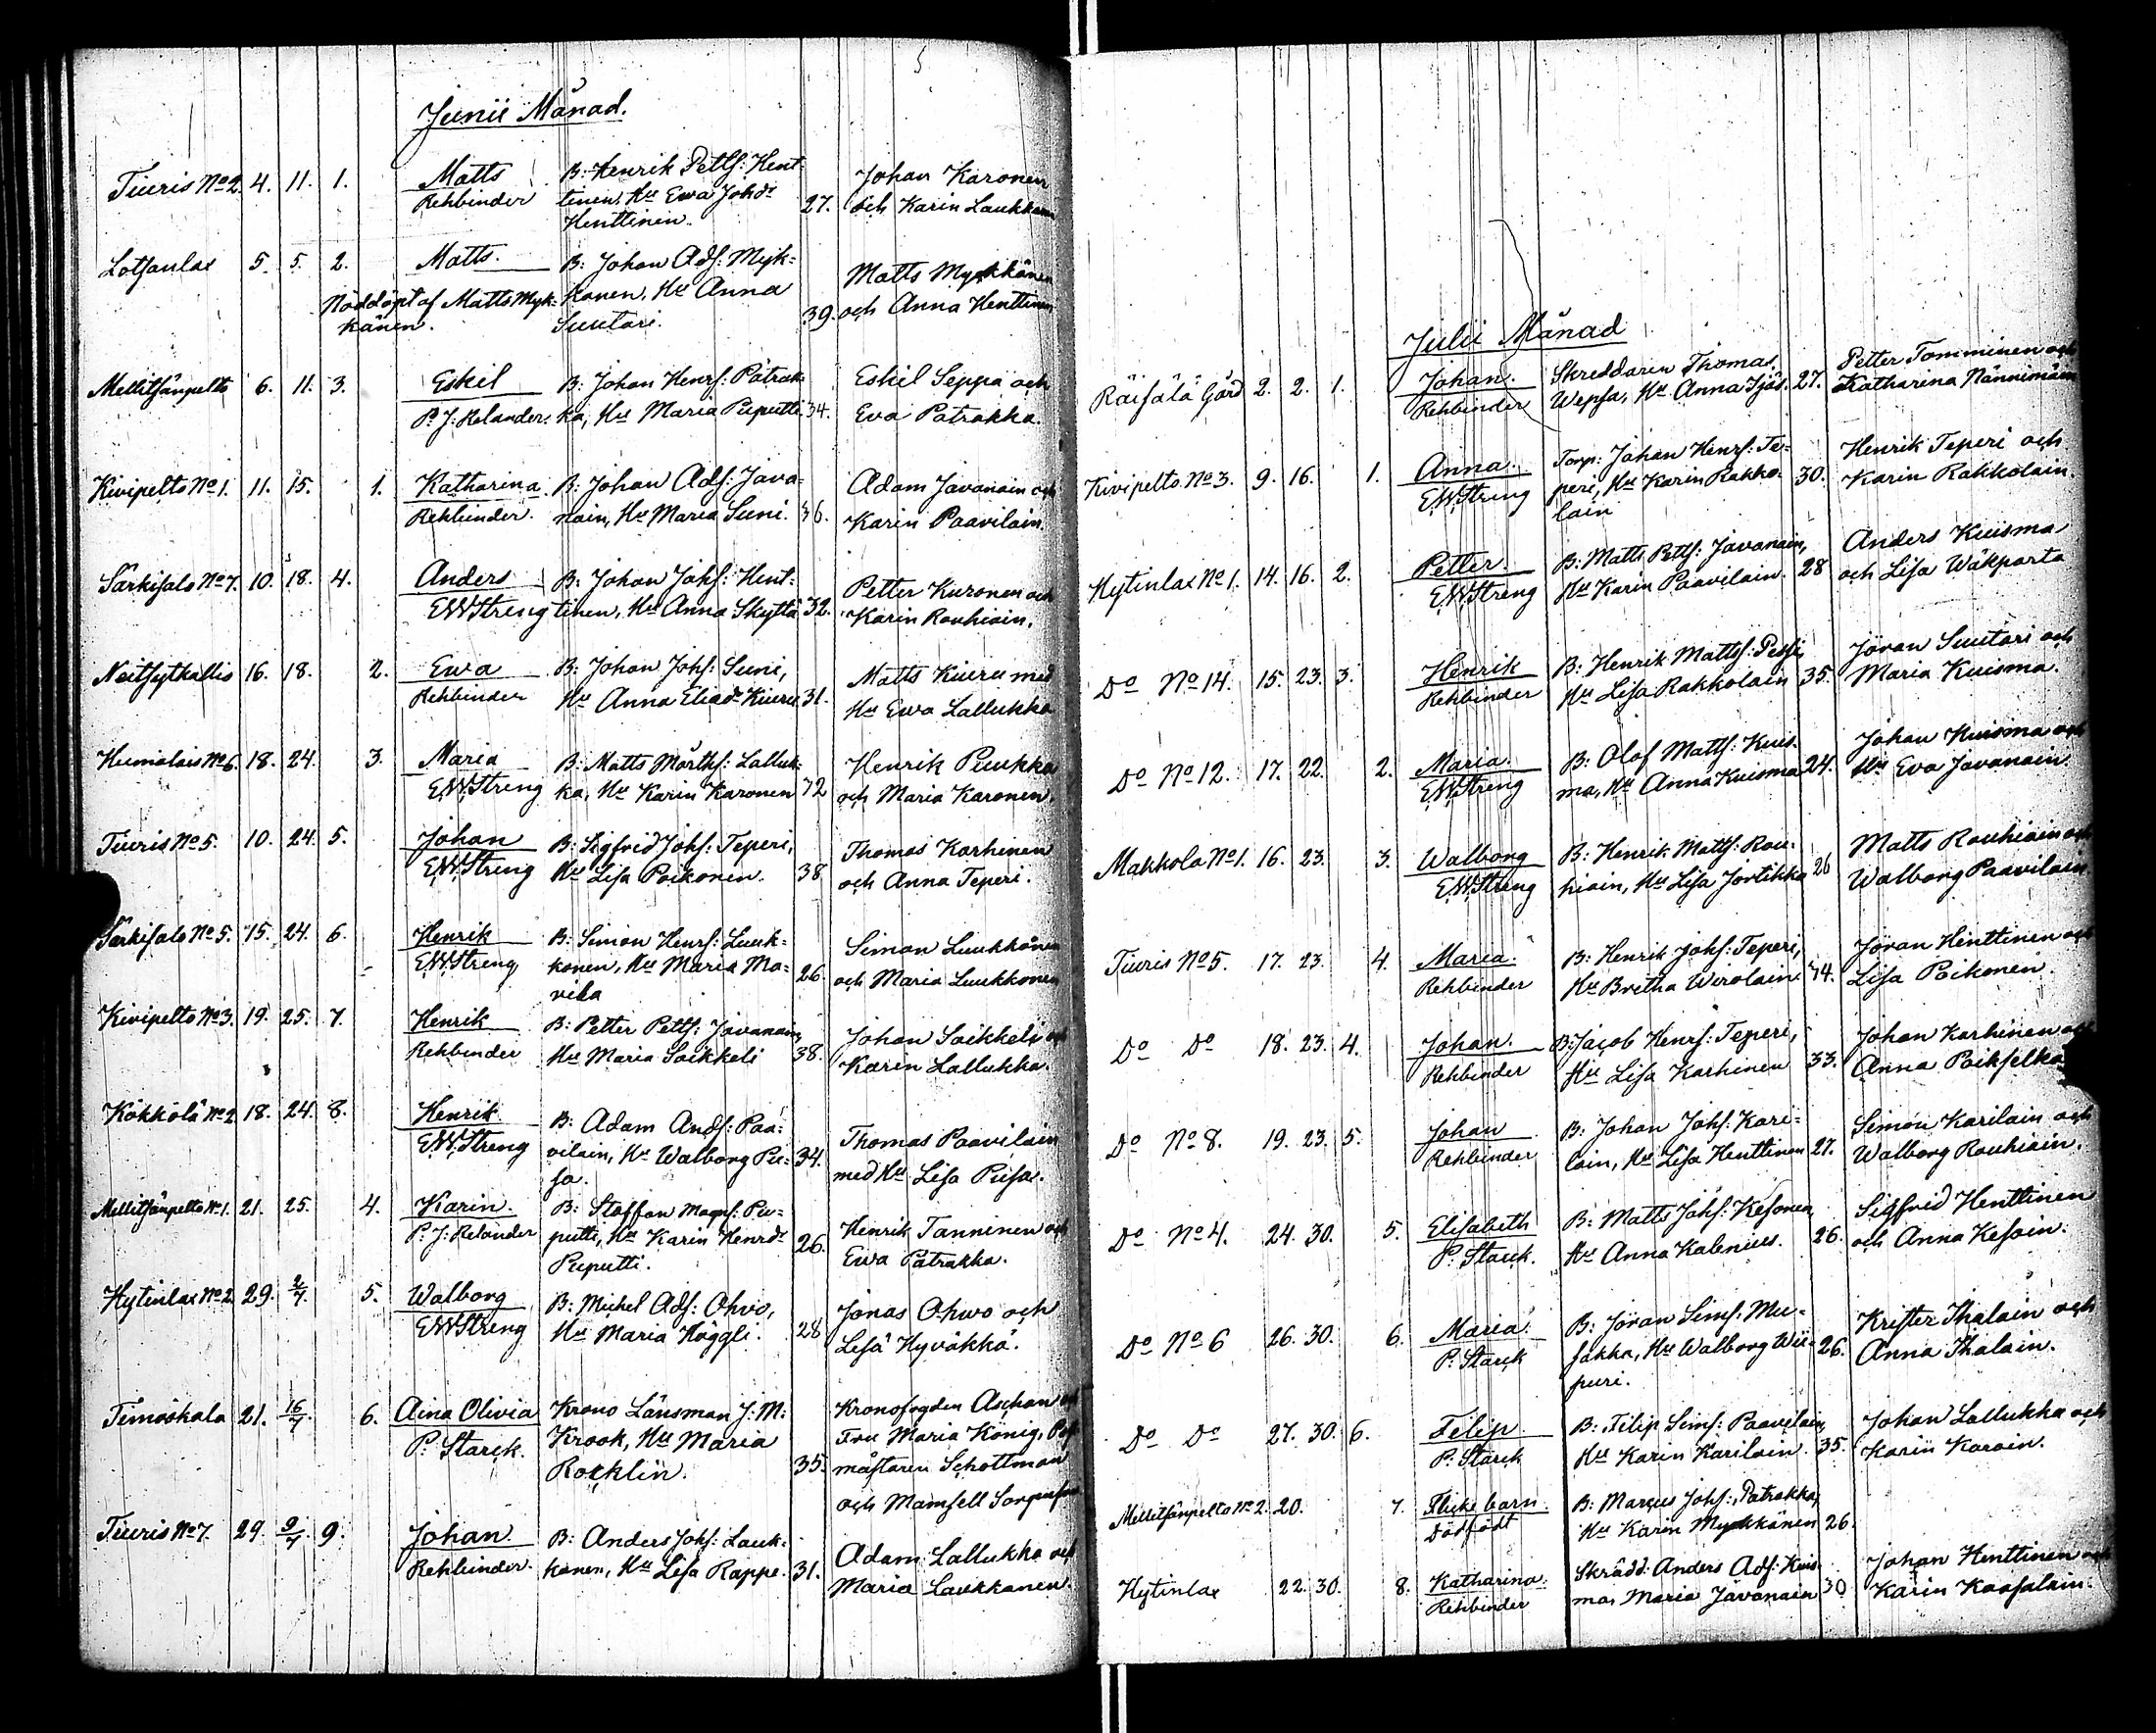 Junii Månad.
Tiuris No 2. 4. 11. 1. Matts B: Henrik Pettf: Hent- Johan Karonen
Rehbinder tinen, Hu Ewa Johdr 27. och Karin Laukkanen
Henttinen.
Lotsanlax 5. 5. 2. Matts. B: Johan Adf: Myk= Matts Mykkänen
Nöddöpt af Matts Myk- känen, Hu Anna 39. och Anna Henttinen
känen. Suutari.
Mellitsänpelto 6. 11. 3. Eskil B: Johan Henrf: Patrak- Eskil Seppä och
P. J: Relander. ka, Hu Maria Puputti. 34. Eva Patrakka.
Kivipelto No 1. 11. 15. 1. Katharina B: Johan Adf: Java= Adam Javanain och
Rehbinder. nain, Hu Maria Suni. 36. Karin Paavilain.
Särkisalo No 7. 10. 18. 4. Anders B: Johan Johf: Hent= Petter Kuronen och
E.W.Streng tinen, Hu Anna Skyttä 32. Karin Rouhiain.
Neitsytkallio 16. 18. 2. Ewa B: Johan Johf: Suni, Matts Kiuru med
Rehbinder Hu Anna Eliadr Kiuru 31. Hu Ewa Lallukka
Humalais No 6. 18. 24. 3. Maria B: Matts Mårthf: Lalluk- Henrik Puukka
E.W.Streng ka, Hu Karin Karonen 42 och Maria Karonen.
Tiuris No 5. 10. 24. 5. Johan B: Sigfrid Johf: Teperi, Thomas Karhinen
E.W.Streng Hu Lisa Poikonen. 38 och Anna Teperi.
Särkisalo No 5. 15. 24. 6. Henrik B: Simon Henrf: Luuk= Simon Luukkonen
E.W.Streng konen, Hu Maria Ma= 26. och Maria Luukkonen
vika
Kivipelto No 3. 19. 25. 7. Henrik B: Petter Pettf: Javanain, Johan Saikkeli och
Rehbinder Hu Maria Saikkeli 38. Karin Lallukka.
Kökkölä No 2 18. 24. 8. Henrik B: Adam Andf: Paa=
E.W.Streng vilain, Hu Walborg Pu= 34. Thomas Paavilain
sa. med Hu Lisa Pusa.
Mellitsänpelto No 1. 21. 25. 4. Karin. B: Staffan Magnf: Pu=
P. J: Relander putti, Hu Karin Henrdr 26. Henrik Tanninen och
Puputti. Ewa Patrakka.
Hytinlax No 2. 29. 2/7. 5. Walborg B: Michel Adf: Ohvo, Jonas Ohwo och
E.W.Streng Hu Maria Häggli. 28 Lisa Hyväkkä.
Timoskala 21. 16/7. 6. Aina Olivia Krono Länsman J: M: Kronofogden Aschan och
P. Starck. Krook, Hu Maria Fru Maria König, Post
Rocklin. 35. mästaren Schottman
och Mamsell
Tiuris No 7. 29. 9/7. 9. Johan. B: Anders Johf: Lauk= Adam Lallukka och
Rehbinder. kanen, Hu Lisa Rappe. 31. Maria Laukkanen.
Julii Månad
Räisälä Gård 2. 2. 1. Johan. Skreddaren Thomas Petter Tomminen och
Rehbinder Wepsa, Hu Anna Sjös. 27. Katharina Nännimäin
Kivipelto No 3. 9. 16. 1. Anna. Torp: Johan Henrf: Te= Henrik Teperi och
E.W.Streng peri, Hu Karin Rakko- 30. Karin Rakkolain.
lain
Hytinlax No 1. 14. 16. 2. Petter. B: Matts Pettf: Javanain, Anders Kuisma
E.W.Streng Hu Karin Paavilain. 28 och Lisa Wäkparta
Do No 14. 15. 23. 3. Henrik B: Henrik Mattf: Pessi, Jöran Suutari och
Rehbinder Hu Lisa Rakkolain 35. Maria Kuisma.
Do No 12. 17. 22. 2. Maria. B: Olof Mattf: Kuis- Johan Kuisma och
E.W.Streng ma, Hu Anna Kuisma 24. Hu Eva Javanain.
Makkola No 1. 16. 23. 3. Walborg B: Henrik Mattf: Rou- Matts Rouhiain och
E.W.Streng hiain, Hu Lisa Jortikka 26 Walborg Paavilain
Tiuris No 5. 17. 23. 4. Maria. B: Henrik Johf: Teperi, Jöran Henttinen och
Rehbinder Hu Bretha Wirolain 44. Lisa Poikonen.
Do Do 18. 23. 4. Johan. B: Jacob Henrf: Teperi, Johan Karhinen och
Rehbinder Hu Lisa Karhinen 33. Anna Poikselka
Do No 8. 19. 23. 5. Johan B: Johan Johf: Kari= Simon Karilain och
Rehbinder lain, Hu Lisa Henttinen 27. Walborg Rouhiain.
Do No 4. 24. 30. 5. Elisabeth B: Matts Johf: Kesonen, Sigfrid Henttinen
P. Starck. Hu Anna Kalenius. 26. och Anna Kesoin.
Do No 6 26. 30. 6. Maria. B: Jöran Simf: Mu- Krister Ihalain och
P. Starck sakka, Hu Walborg Wii- 26. Anna Ihalain.
puri.
Do Do 27. 30. 6. Filip. B: Filip Simf: Paavilain, Johan Lallukka och
P. Starck Hu Karin Karilain. 35. Karin Karoin.
Mellitsänpelto No 2. 20. 7. Flicke barn. B: Marcus Johf: Patrakka,
Dödfödt Hu Karin Mykkänen 26.
Hytinlax 22. 30. 8. Katharina. Skrädd. Anders Adf: Kuis- Johan Henttinen och
Rehbinder ma, Maria Javanain 30 Karin Kaasalain.